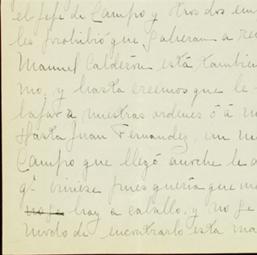 el Jefe de Campo y otros dos em
les prohibió que salieran a re
Manuel Calderón está tambien
mo, y hasta creemos que le
bajar a nuestras ordenes ó á m
Hasta Juan Fernandez, un m
Campo que llegó anoche le d
qe viniese pues quería que me
hoy a caballo, y no se
modo de encontrarlo esta ma